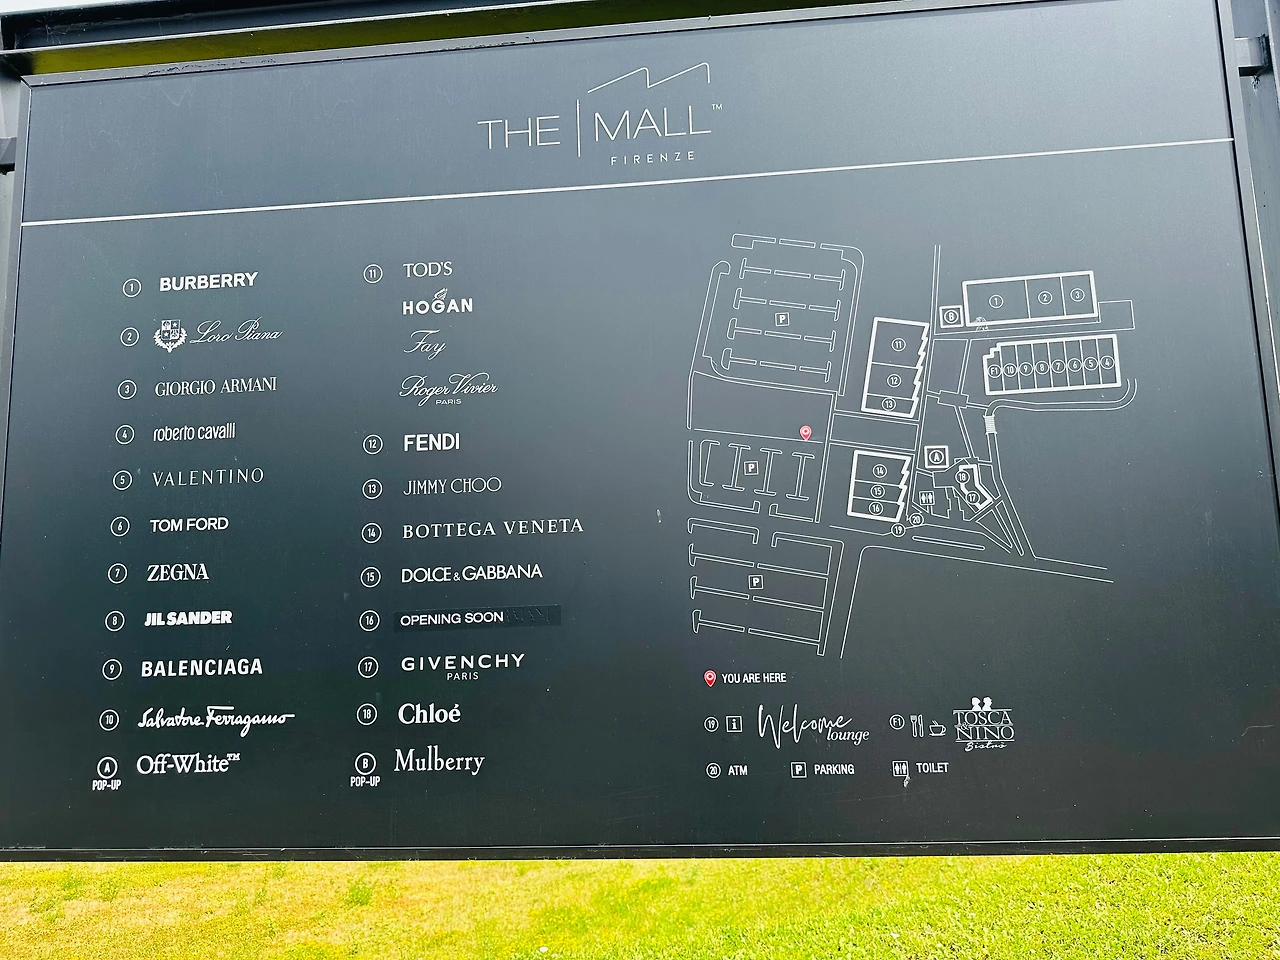 THE | MALL™
FIRENZE
1 BURBERRY
2 Loro Piana
3 GIORGIO ARMANI
4 roberto cavalli
5 VALENTINO
6 TOM FORD
7 ZEGNA
8 JIL SANDER
9 BALENCIAGA
10 Salvatore Ferragamo
A Off-White™
POP-UP
11 TOD'S
HOGAN
Fay
Roger Vivier
PARIS
12 FENDI
13 JIMMY CHOO
14 BOTTEGA VENETA
15 DOLCE & GABBANA
16 OPENING SOON
17 GIVENCHY
PARIS
18 Chloé
B Mulberry
POP-UP
P
B 1 2 3
11
12
13
F1 10 9 8 7 6 5 4
P
A
14
15
16
18
17
20
19
P
YOU ARE HERE
19 i Welcome
lounge
F1 TOSCA
NINO
Bistrò
20 ATM
P PARKING
TOILET